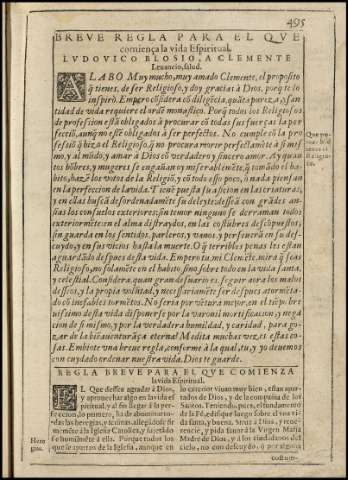 495
BREVE REGLA PARA EL QVE
comiença la vida Espiritual,
LVDOVICO BLOSIO, A CLEMENTE
Leuancio, salud.
ALABO Muy mucho, muy amado Clemente, el proposito
q̃ tienes, de ser Religioso, y doy gracias à Dios, porq̃ te lo
inspirò. Empero cõsidera cõ diligẽcia, quãta pureza, y san-
tidad de vida requiere el ordẽ monastico. Porq̃ todos los Religiosos
de profession estã obligados à procurar cõ todas sus fuerças la per
feccio, aunq̃ no estẽ obligados à ser perfectos. No cumple cõ la pro
fessiõ q̃ hizo el Religioso, q̃ no procura morir perfectamẽte à si mis
mo, y al mũdo, y amar à Dios cõ verdadero y sincero amor. Ay quan
tos hõbres, y mugeres se engañan muy miserablemẽte, q̃ tomãdo el ha
bito, hazẽ los votos de la Religiõ, y cõ todo esso poco, ò nada piensan
en la perfeccion de la vida. Tienẽ puesta su aficion en las criaturas,
y en ellas buscã desordenadamẽte su deleyte: desseã con grãdes an-
sias los consuelos exteriores: sin temor ninguno se derraman todos
exteriormẽte: en el alma distraydos, en las costũbres descõpuestos,
sin guarda en los sentidos, parleros, y vanos, y perseuerã en su des-
cuydo, y en sus vicios hasta la muerte. O q̃ terribles penas les estan
aguardãdo despues desta vida. Empero tu, mi Clemẽte, mira q̃ seas
Religioso, no solamẽte en el habito sino sobre todo en la vida santa,
y celestial. Considera, quan gran desuario es, seguir aora los malos
desseos, y la propia volũtad, y necessariamẽte ser despues atormẽta-
do cõ inefables tormẽtos. No seria por vẽtura mejor, en el tiẽpo bre
uissimo desta vida disponerse por la varonil mortificacion, y nega
cion de si mismo, y por la verdadera humildad, y caridad, para go-
zar de la bienauenturãça eterna? Medita muchas vezes estas co-
sas. Embiote vna breue regla, conforme à la qual, tu, y yo deuemos
con cuydado ordenar nuestra vida. Dios te guarde.
REGLA BREVE PARA EL QVE COMIENZA
la vida Espiritual.
EL Que dessea agradar à Dios,
y aprouechar algo en la vida es
piritual, y al fin llegar à la per-
feccion do primero, ha de abominar to-
das las heregias, y cismas, allegãdose fir
memẽte à la Iglesia Catolica, y sujetãdo
se humilmẽte à ella. Porque todos los
que se apartan de la Iglesia, aunque en
lo exterior viuan muy bien, estan apar-
tados de Dios, y de la compañia de los
Santos. Teniendo, pues, el fundamento
de la Fè, edifique luego sobre el vna vi-
da santa, y buena. Mire à Dios, y reue-
rencie, y pida fauor à la Virgen Maria
Madre de Dios, y à los ciudadanos del
cielo, no con descuydo, ò por alguna